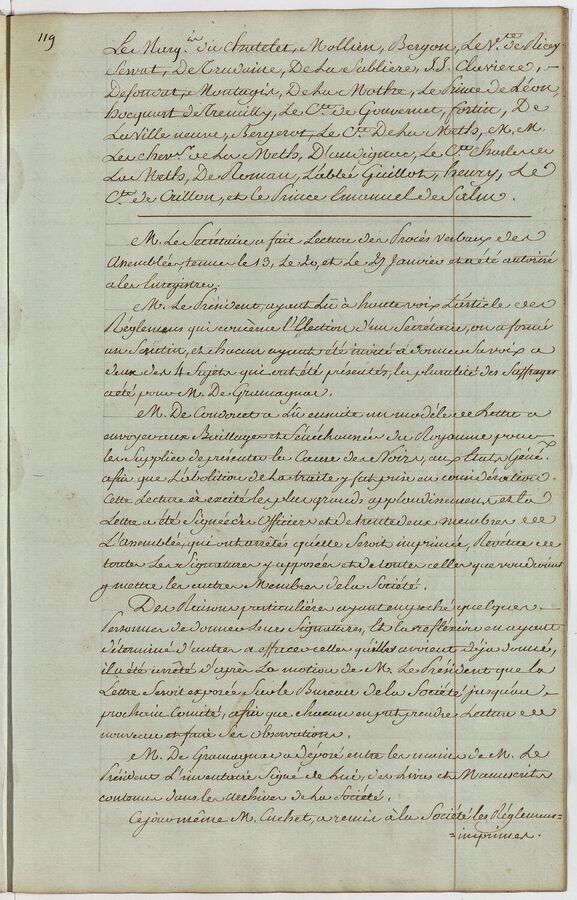 119
Les Marq.is du Chatelet, Mollien, Bergon, Le V.te de Ricey
Servat, De Trudaine, De La Sabliere, J.J. Claviere, –
Desfourcat, Montagis, De La Mothe, Le Prince de Léon,
Hocquart de Tremilly, Le C.te de Gouvernet, fortin, De
La Ville neuve, Bergerot, Le C.te De La Meth, M. M.
Les chev.rs de La Meth, D'andignac, Le C.te Charles de
La Meth, De Roman, L'abbé Guillot, henry, Le
C.te de Crillon, et Le Prince Emanuel de Salm.
M. Le Secrétaire a fait Lecture des Procès Verbaux des
Assemblées tenues le 13, Le 20, et Le 29 Janvier et a été autorisé
a les Enregistrer.
M. Le Président, ayant Lû à haute voix L'article des
Réglemens qui concerne l'Election d'un Secretaire, on a formé
un Scrutin, et chacun ayant été invité à donner Sa voix a
deux des 4 Sujets qui ont été présentés, la pluralité des Suffrages
a été pour M. De Gramagnac.
M. De Condorcet a Lû ensuite un modéle de Lettre a
envoyer aux Bailliages et Sénéchaussées du Royaume pour –
les Supplier de présenter La Cause des Noirs, aux Etats Géné.x
afin que L'abolition de La traite y fut prise en considération.
Cette Lecture a excité les plus grands applaudissemens et La
Lettre a été Signée des Officiers et de trente deux membres de
L'Assemblée, qui ont arrêtés qu'elle Seroit imprimée, Revétue de
toutes Les Signatures y apposées et de toutes celles que voudroient
y mettre les autres Membres de la Société.
Des Raisons particulières ayant empeché quelques –
Personnes de donner Leurs Signatures, Et la réfléxion en ayant
déterminé d'autres a effacer celles qu'elles avoient déja données,
il a été arrêté d'après La motion de M. Le Président que la
Lettre Seroit exposée Sur le Bureau de la Société jusqu'au –
prochain Comité, afin que chacun en put prendre Lecture de
nouveau et faire Ses Observations.
M. De Gramagnac a déposé entre les mains de M. Le
Président L'inventaire Signé de Lui, des Livres et Manuscrits
contenus dans les Archives de La Société.
Ce jour même M. Cuchet, a remis à la Société les Réglemens =
= imprimés.